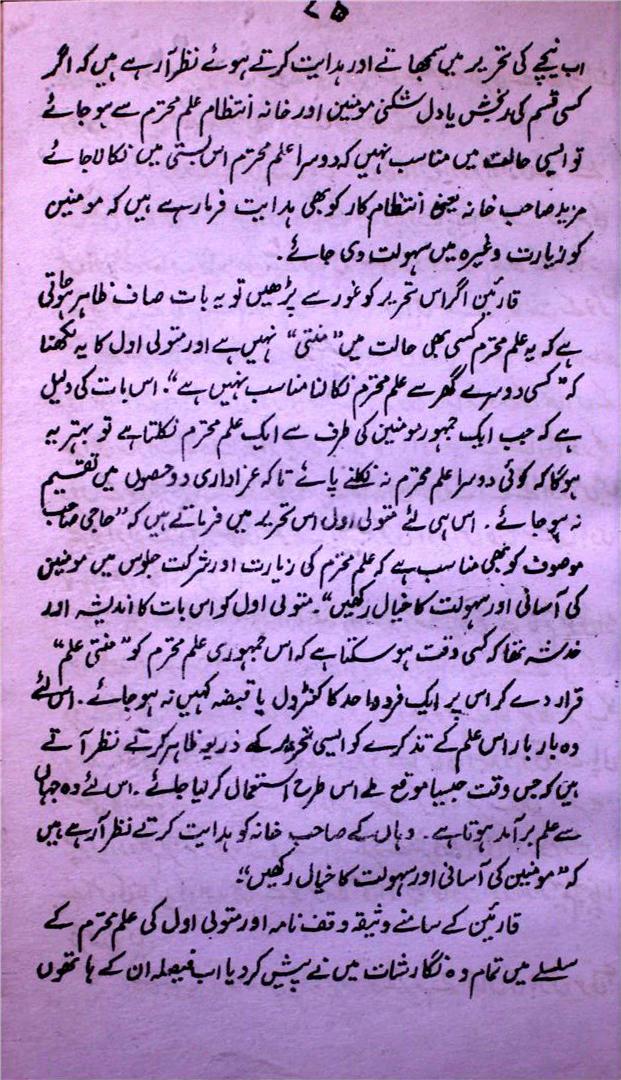 ۷۵
اب نیچے کی تحریر میں سمجھاتے اور ہدایت کرتے ہوئے نظر آرہے ہیں کہ اگر
کسی قسم کی رنجش یا دل شکنی مومنین اور خانہ انتظام علم محترم سے ہو جائے
تو ایسی حالت میں مناسب نہیں کہ دوسرا علم محترم اس بستی میں نکالا جائے
مزید صاحب خانہ یعنی انتظام کار کو بھی ہدایت فرما رہے ہیں کہ مومنین
کو زیارت وغیرہ میں سہولت دی جائے۔
قارئین اگر اس تحریر کو غور سے پڑھیں تو یہ بات صاف ظاہر ہو جاتی
ہے کہ یہ علم محترم کسی بھی حالت میں "منتی" نہیں ہے اور متولی اول کا یہ لکھنا
کہ "کسی دوسرے گھر سے علم محترم نکالنا مناسب نہیں ہے"۔ اس بات کی دلیل
ہے کہ جب ایک جمہور مومنین کی طرف سے ایک علم محترم نکلتا ہے تو بہتر یہ
ہوگا کہ کوئی دوسرا علم محترم نہ نکلنے پائے تاکہ عزاداری دو حصوں میں تقسیم
نہ ہو جائے۔ اس ہی لئے متولی اول اس تحریر میں فرماتے ہیں کہ "حاجی صاحب
موصوف کو بھی مناسب ہے کہ علم محترم کی زیارت اور شرکت جلوس میں مومنین
کی آسانی اور سہولت کا خیال رکھیں"۔ متولی اول کو اس بات کا اندیشہ اور
خدشہ تھا کہ کسی وقت ہو سکتا ہے کہ اس جمہوری علم محترم کو "منتی علم"
قرار دے کر اس پر ایک فرد واحد کا کنٹرول یا قبضہ کہیں نہ ہو جائے۔ اس لئے
وہ بار بار اس علم کے تذکرے کو ایسی تحریر کے ذریعہ ظاہر کرتے نظر آتے
ہیں کہ جس وقت جیسا موقع ملے اس طرح استعمال کر لیا جائے۔ اس لئے وہ جہاں
سے علم برآمد ہوتا ہے۔ وہاں کے صاحب خانہ کو ہدایت کرتے نظر آرہے ہیں
کہ "مومنین کی آسانی اور سہولت کا خیال رکھیں"۔
قارئین کے سامنے وثیقہ وقف نامہ اور متولی اول کی علم محترم کے
سلسلے میں تمام وہ نگارشات میں نے پیش کر دیا اب فیصلہ ان کے ہاتھوں